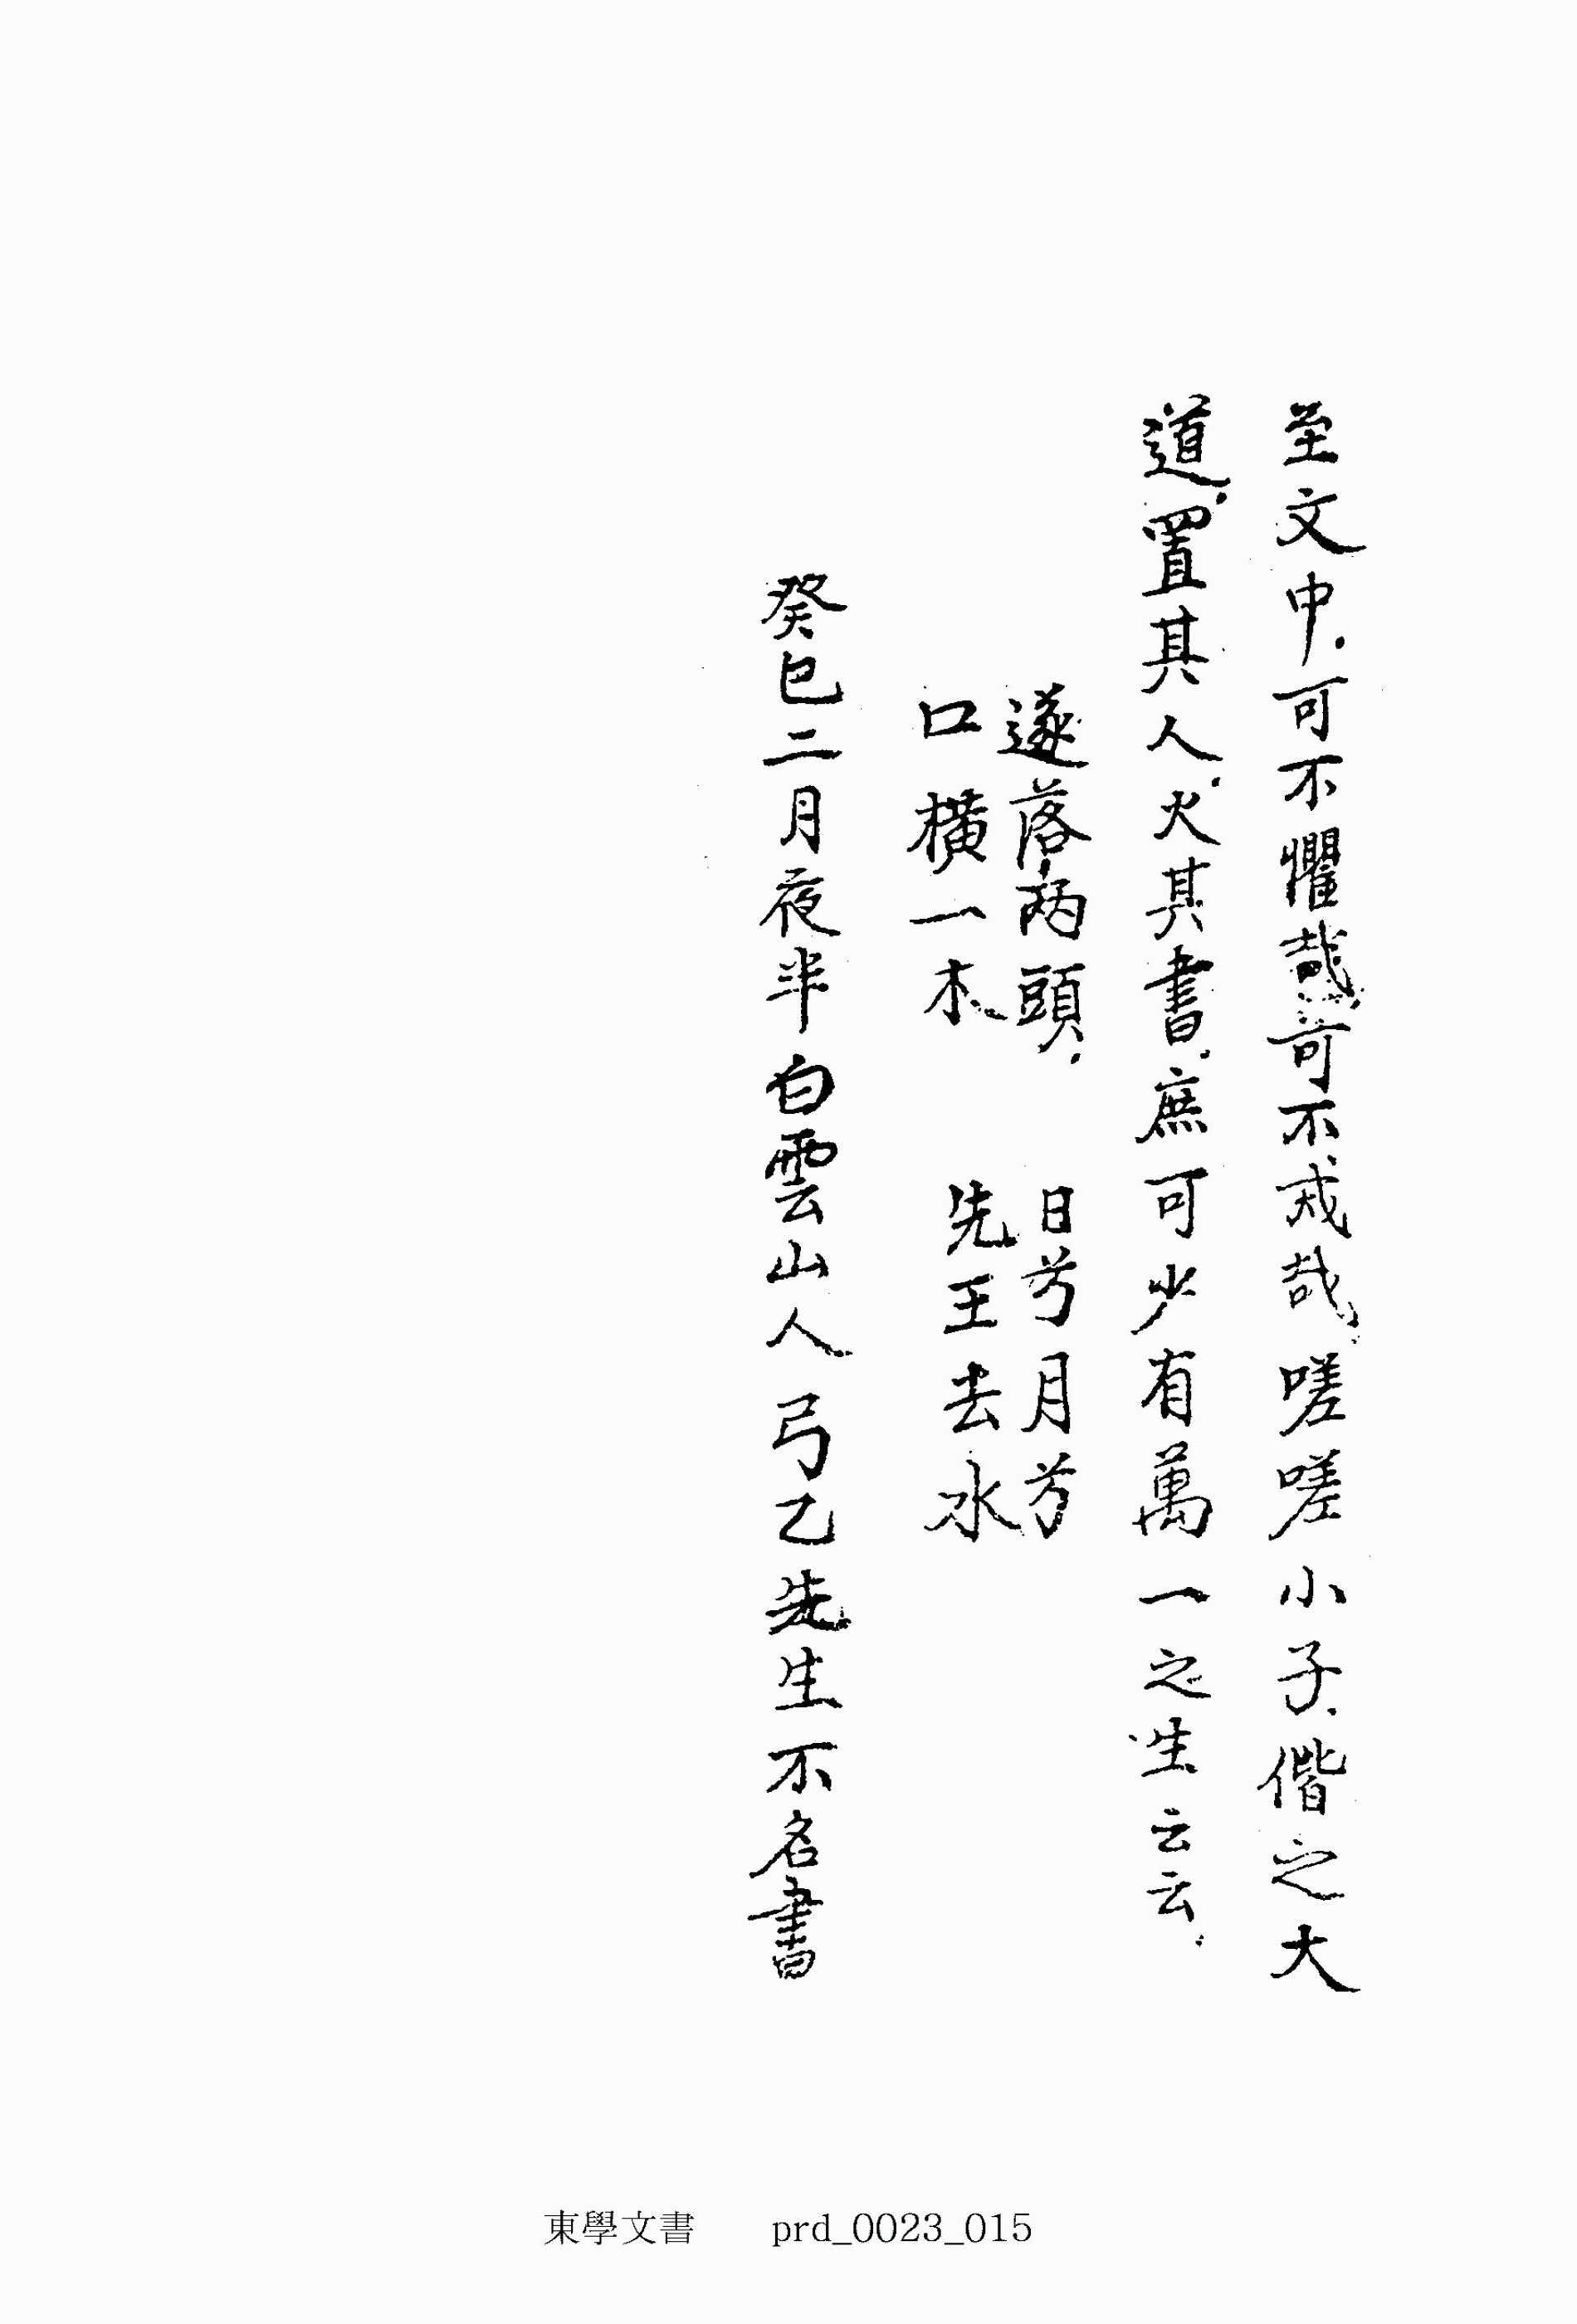 至文中可不懼哉可不戒哉嗟嗟小子偕之大
道置其人火其書庶可少有萬一之生云云
遂落兩頭 日兮月兮
口橫一木 先王去水
癸巳二月夜半白雲山人弓乙先生不名書
東學文書 prd_0023_015